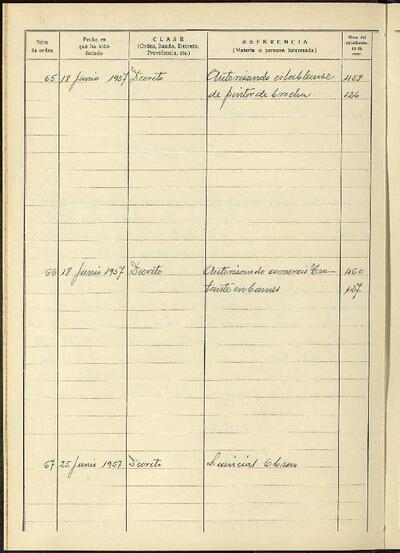 Núm.
de orden
Fecha en
que ha sido
dictado
CLASE
(Orden, Bando, Decreto,
Providencia, etc.)
REFERENCIA
(Materia o persona interesada)
Núm. del
expediente
en su
caso
65 18 Junio 1957 Decreto Autorisando establecerse 458
de pintor de brocha 126
66 18 Junio 1957 Decreto Autorisando comercio Tra- 460
tante en Carnes 127
67 25 Junio 1957 Decreto Licencias Obras